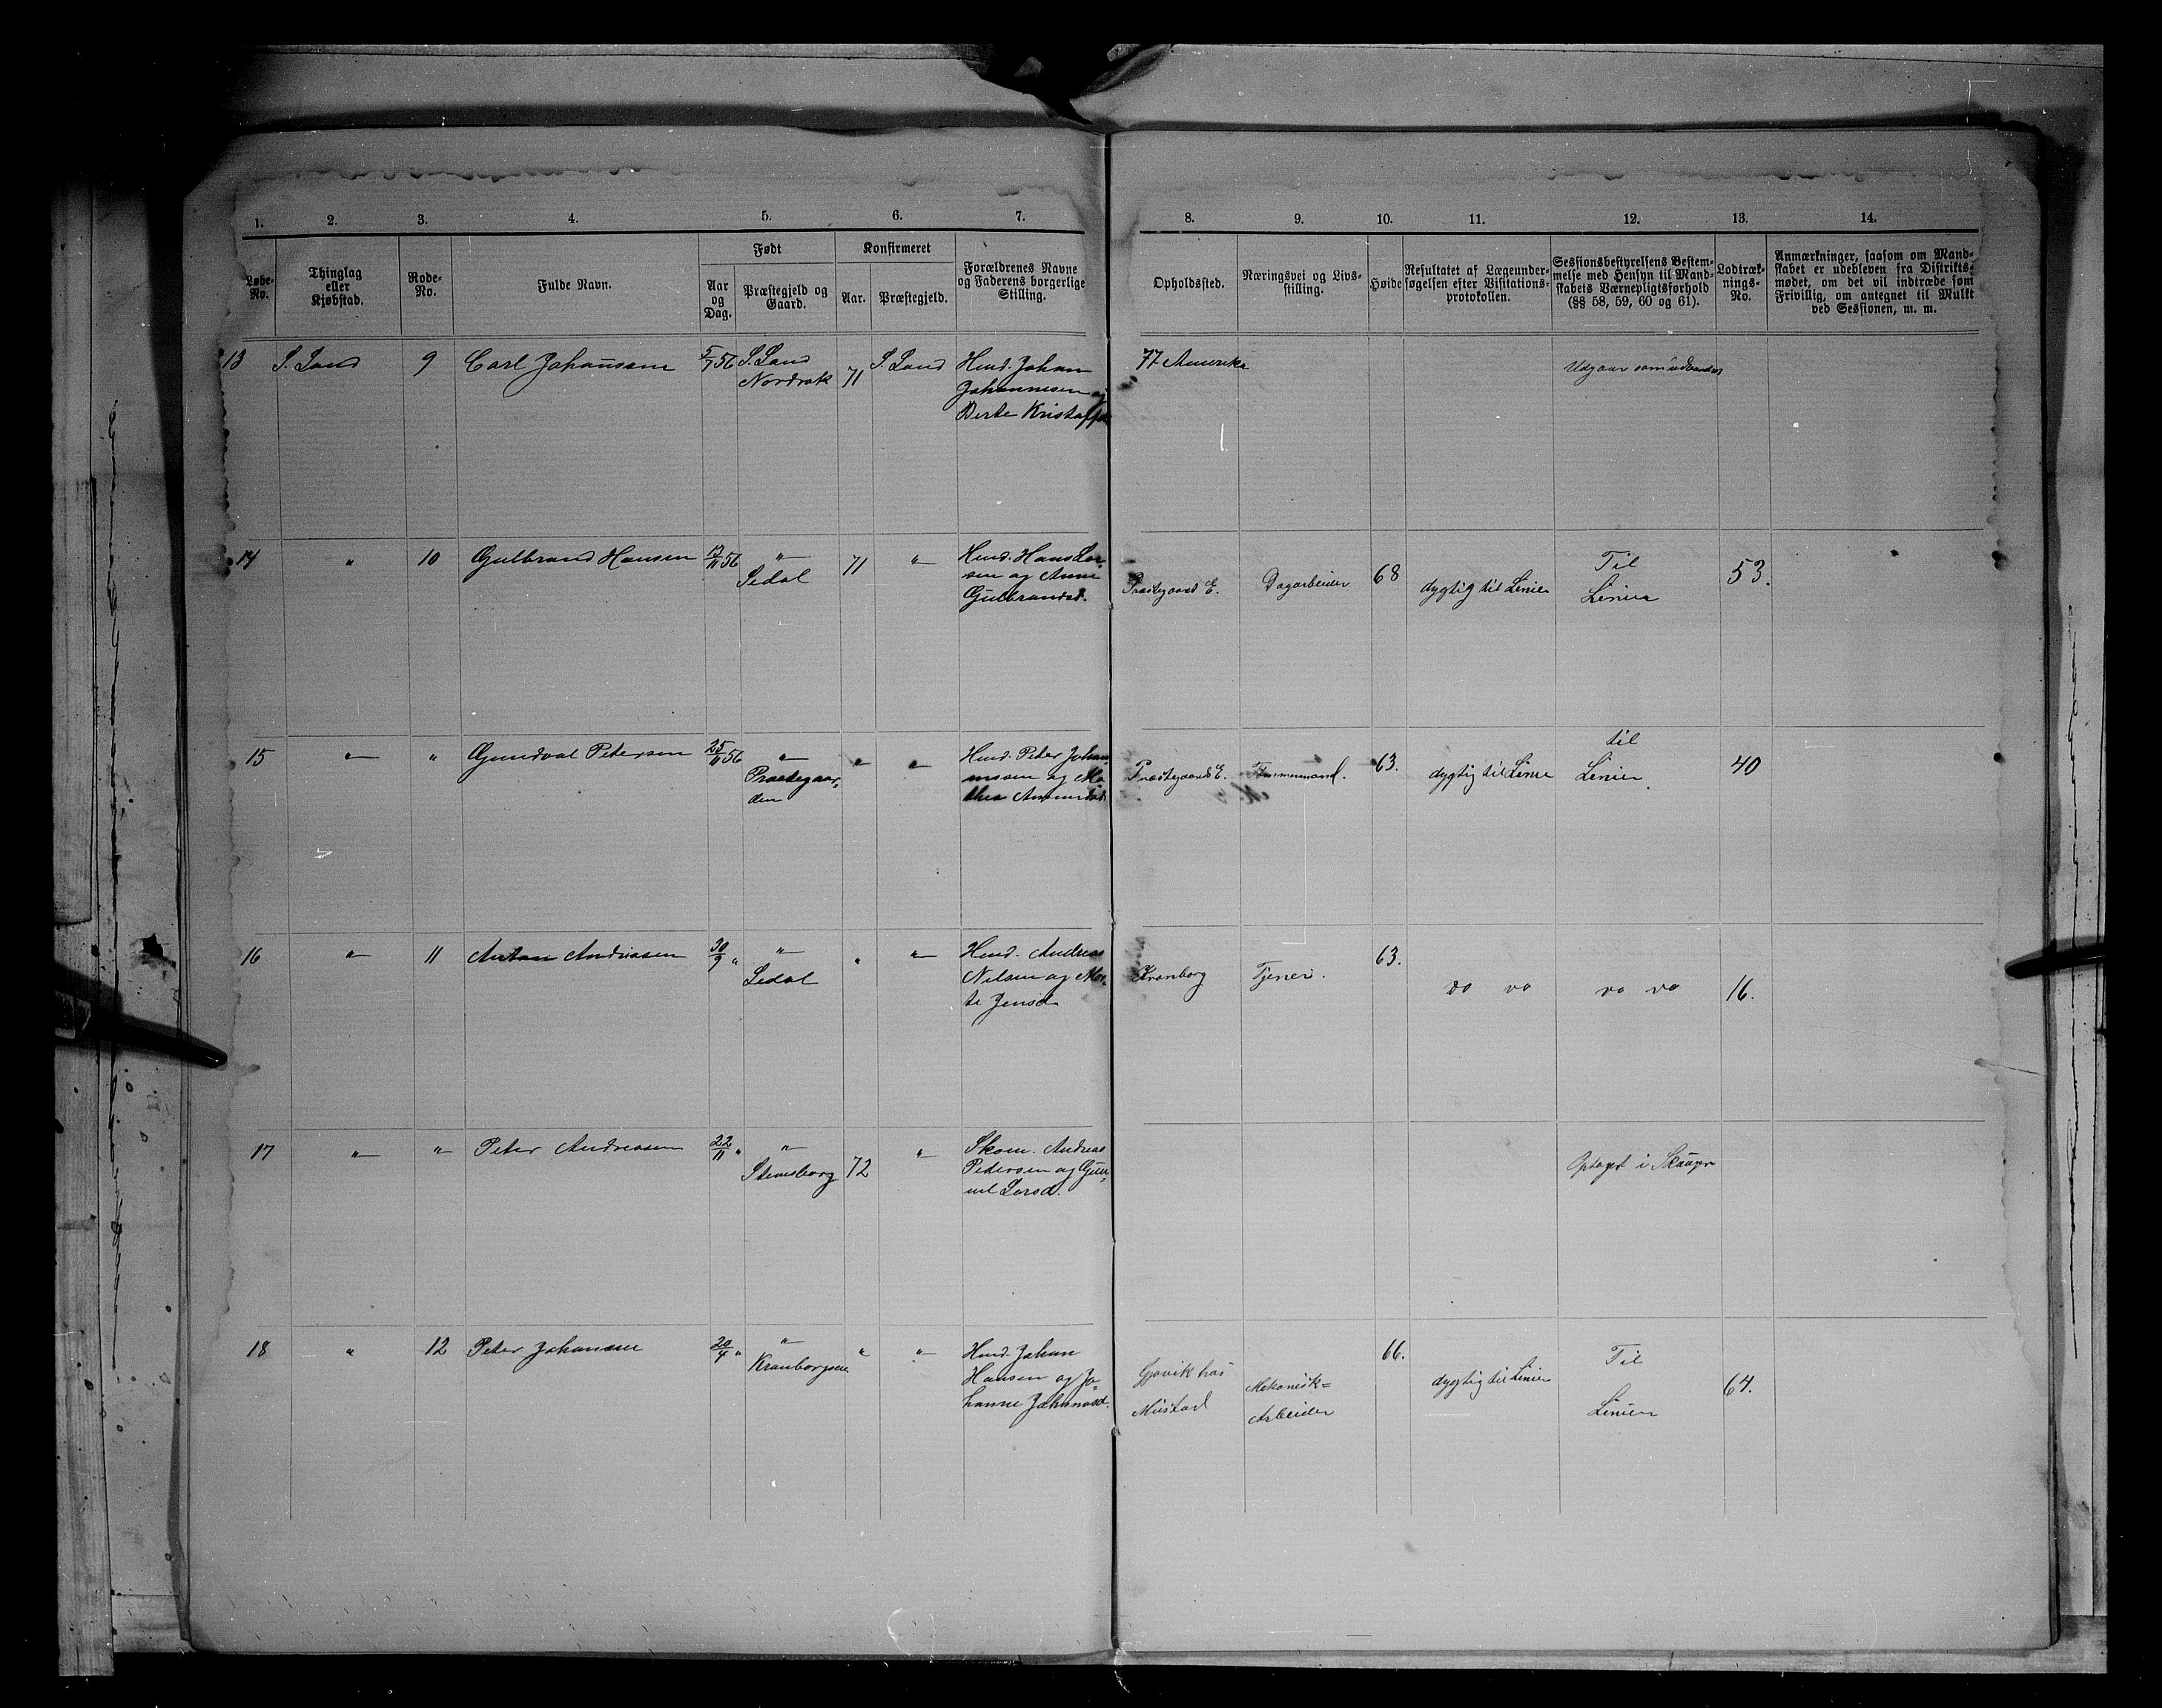 1. 2. 3. 4. 5. 6. 7. 8. 9. 10. 11. 12. 13. 14.
Løbe-No.
Thinglag eller Kjøbstad.
Rode-No.
Fulde Navn.
Født
Aar og Dag.
Præstegjeld og Gaard.
Konfirmeret
Aar.
Præstegjeld.
Forældrenes Navne og Faderens borgerlige Stilling.
Opholdssted.
Næringsvei og Livs-stilling.
Høide
Resultatet af Lægeunder-søgelsen efter Visitations-protokollen.
Sessionsbestyrelsens Bestem-melse med Hensyn til Mand-skabets Værnepligtsforhold (§§ 58, 59, 60 og 61).
Lodtræk-nings-No.
Anmærkninger, saasom om Mand-skabet er udebleven fra Distrikts-mødet, om det vil indtræde som Frivillig, om antegnet til Mulkt ved Sessionen, m. m.
13 S. Land 9 Carl Johansen 5/7 56 S. Land 71 S. Land Hmd. Johan 77 Amerika
Nordrak Johannesen og
Berte Kristoffe
Udgaar som udvandret
14 " 10 Gulbrand Hansen 17/11 56 " 71 " Hmd. Hans Lar-
Sedal sen og Anne
Gulbrandsd.
Præstegaards E. Dagarbeider 68 dygtig til Linien Til Linien 53.
15 " " Gundval Petersen 25/11 56 " " " Hmd. Peter Johan-
Præstegaar- nssen og Ma-
den thea
Præstegaards E. Tømmermand. 63. dygtig til Linie til Linien 40
16 " 11 Anton Andreasen 30/9 " " " " Hmd. Andreas
Sedal Nilsen og Mar-
te Jensd.
Kronborg Tjener. 63. do do do do 16.
17 " " Peter Andreasen 22/11 " " 72 " Skom. Andreas
Stenesborg Pedersen og Gun-
nil Larsd.
Optaget i
18 " 12 Peter Johansen 20/4 " " " " Hmd. Johan
Kronborgseie Hansen og Jo-
hanne Johannesd.
Gjøvik hos Mustad Mekanisk= Arbeider 66. dygtig til Linien Til Linien 64.